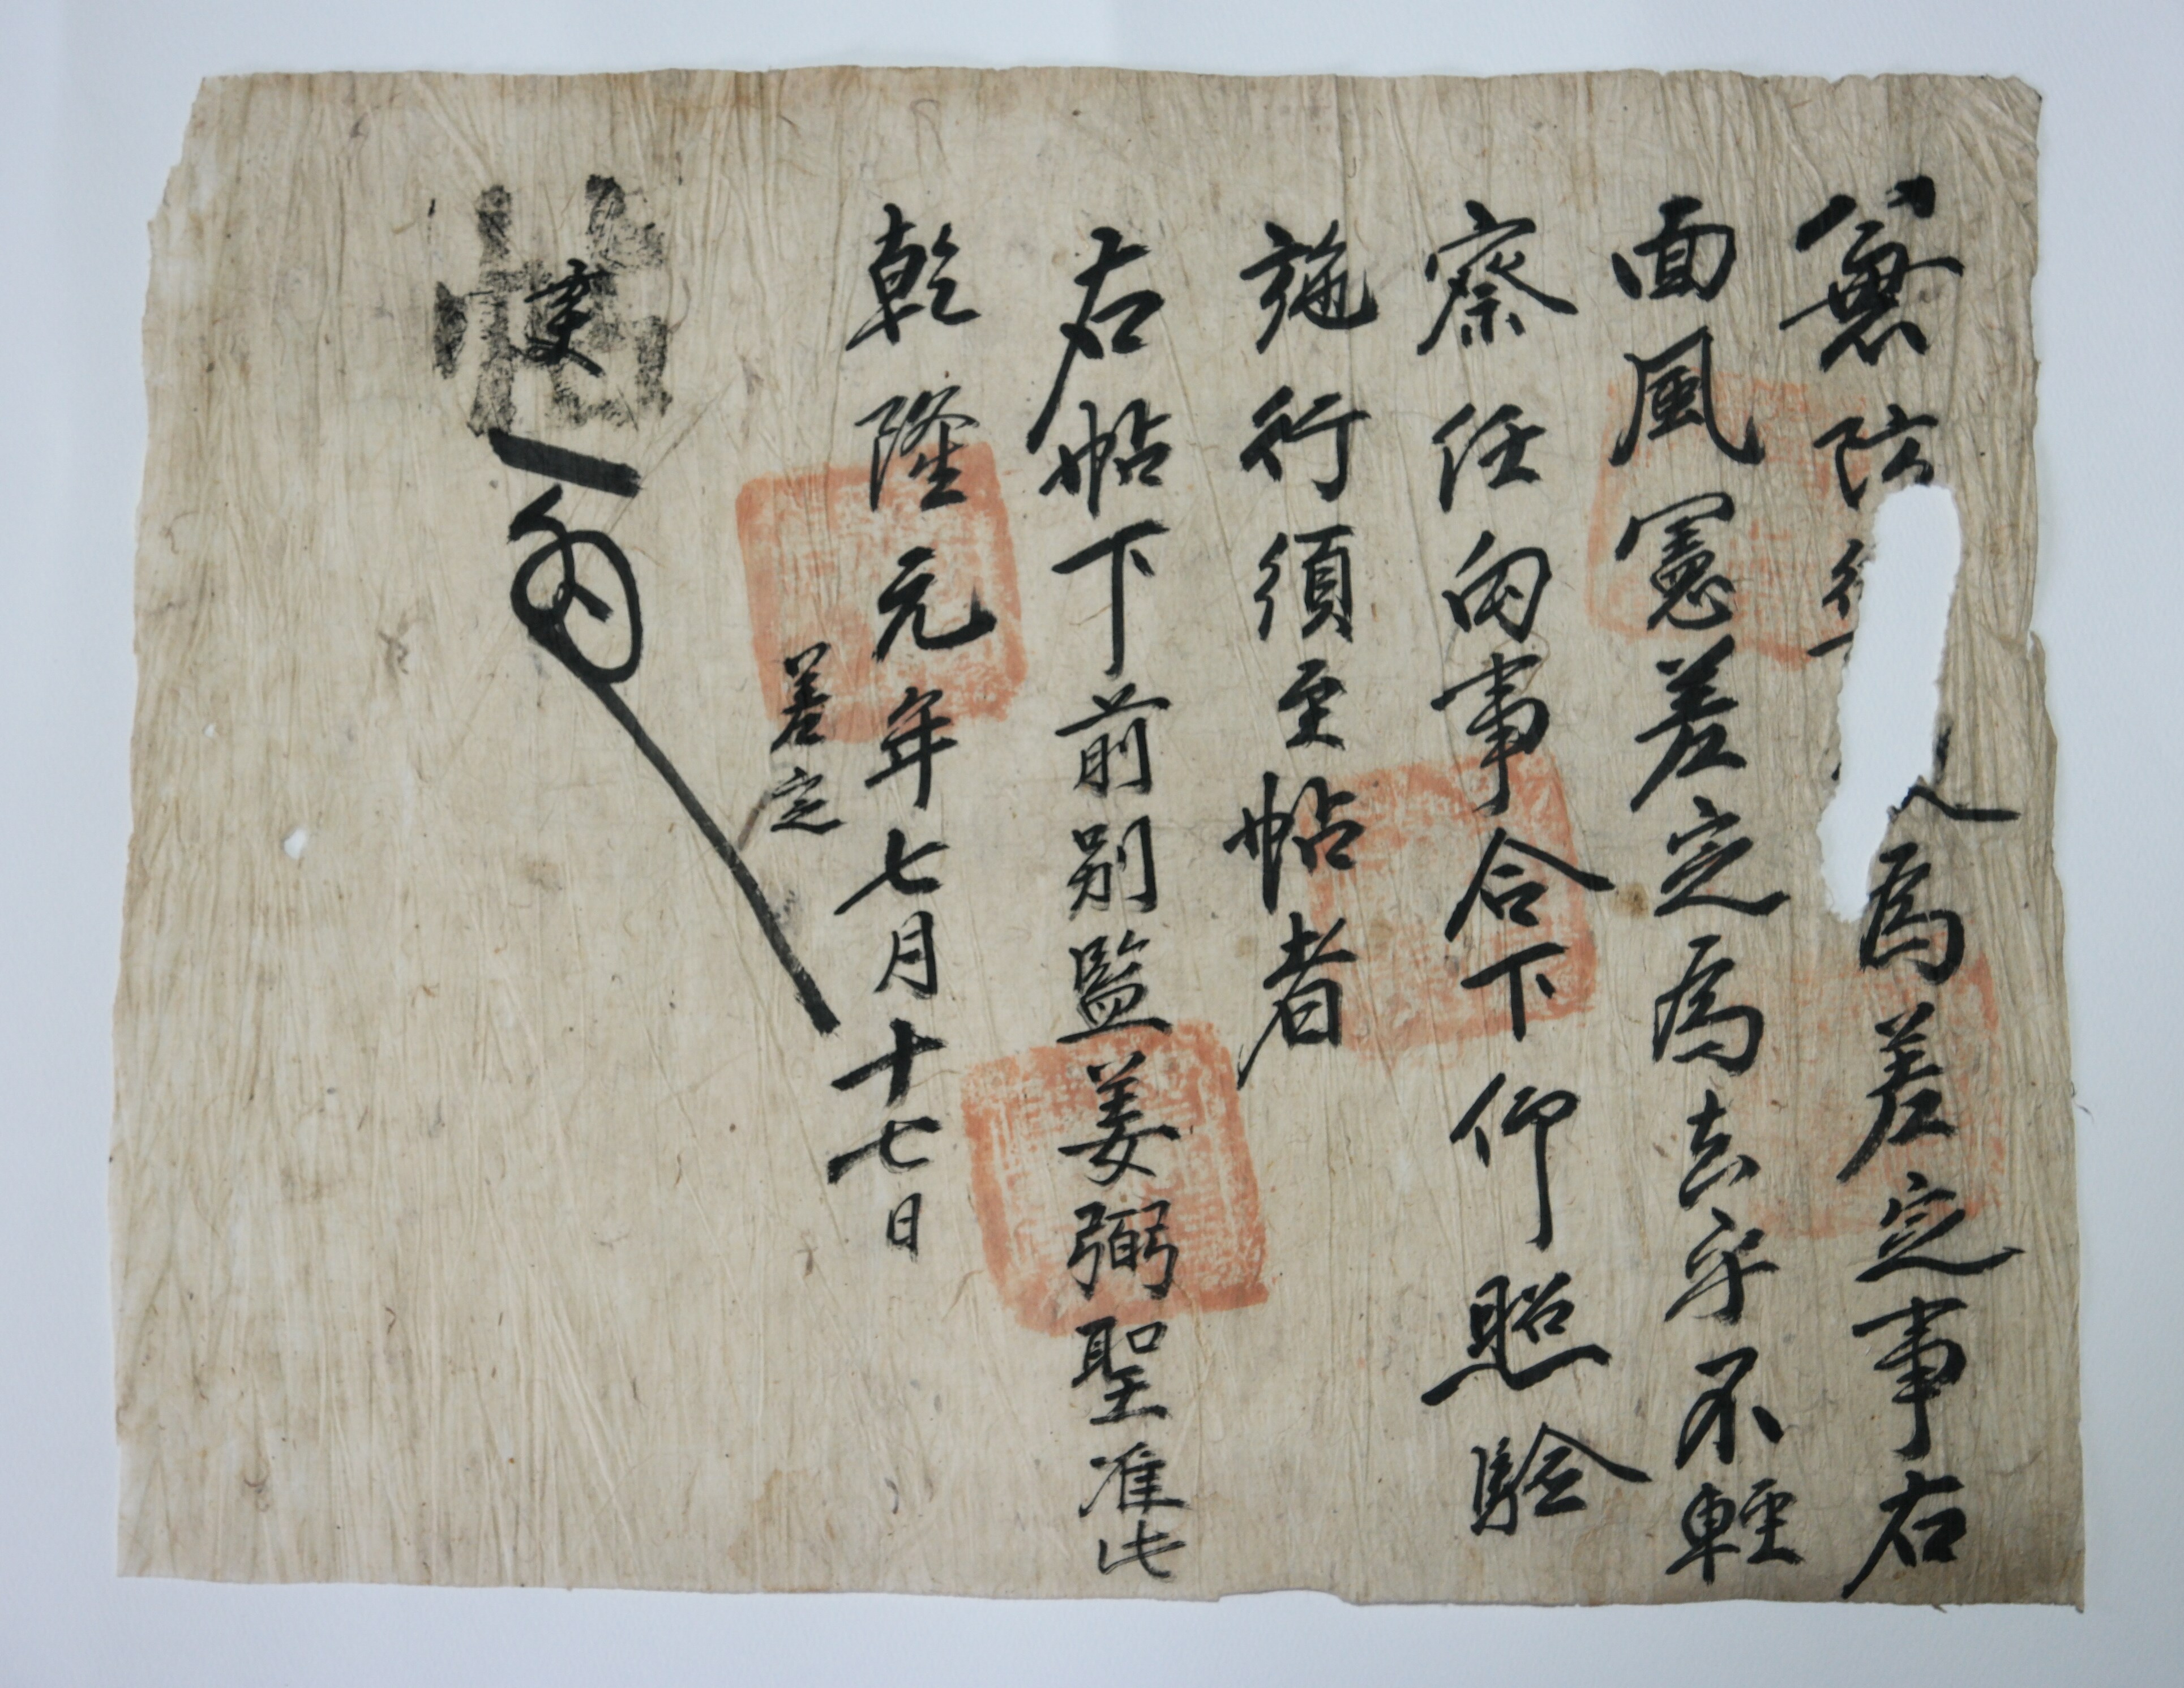 兼防
爲差定事右
面風憲差定爲去乎不輕
察任向事合下仰照驗
施行須至帖者
右帖下前別監姜弼聖准此
乾隆元年七月十七日
差定